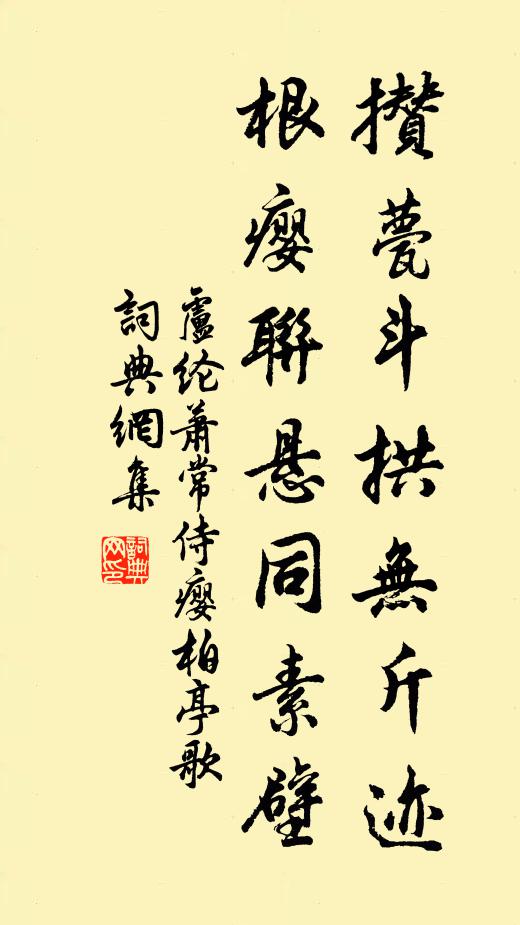 攢甍斗拱無斤迹
根癭聯悬同素壁
盧纶蕭常侍癭柏亭歌
詞典網集
詞典
网印